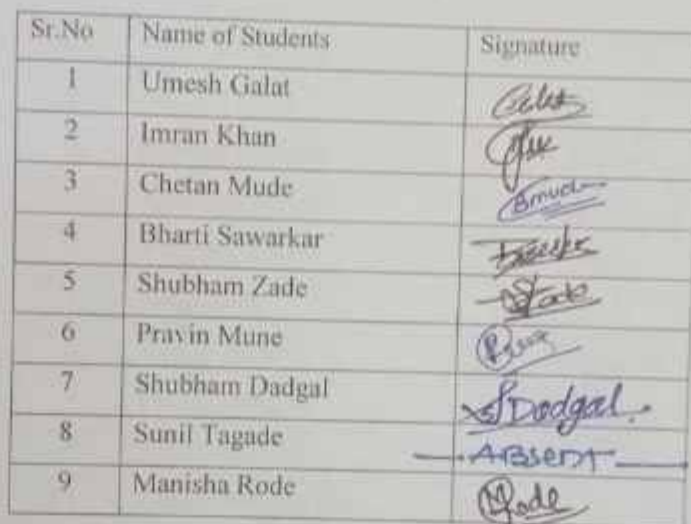 Sr.No Name of Students Signature
1 Umesh Galat Galat
2 Imran Khan
3 Chetan Mude
4 Bharti Sawarkar
5 Shubham Zade
6 Pravin Mune
7 Shubham Dadgal SDadgal.
8 Sunil Tagade ABSENT
9 Manisha Rode MRode